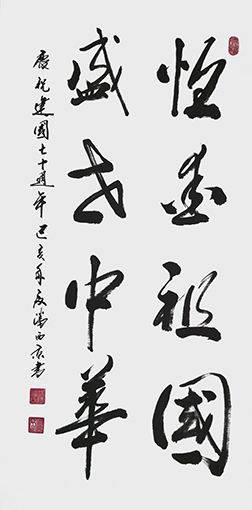 恒祖國
盛世中華
慶祝建國七十週年己亥年夏西書